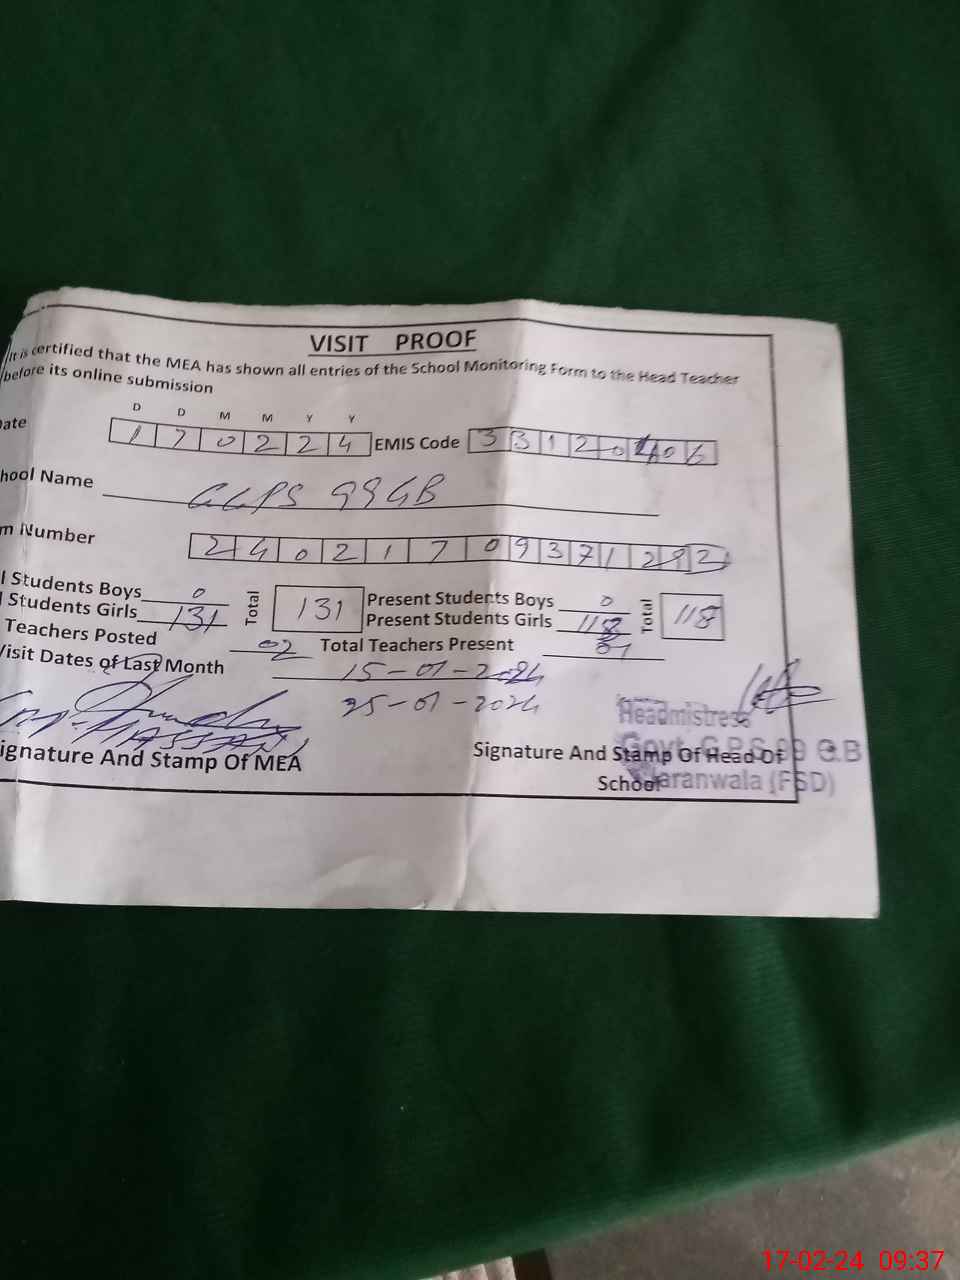 VISIT PROOF
It is certified that the MEA has shown all entries of the School Monitoring Form to the Head Teacher
before its online submission
D D M M Y Y
ate 1 7 0 2 2 4 EMIS Code 3 3 1 2 0 4 0 6
hool Name GGPS 99GB
m Number 2 4 0 2 1 7 0 9 3 7 1 2
l Students Boys 0 Total 131 Present Students Boys 0 Total 118
l Students Girls 131 Present Students Girls 118
Teachers Posted 02 Total Teachers Present
Visit Dates of Last Month 15-01-2024
25-01-2024
HASSAN
Headmistress
Govt. G.P.S 99 G.B
Jaranwala (FSD)
ignature And Stamp Of MEA Signature And Stamp Of Head Of
School
17-02-24 09:37